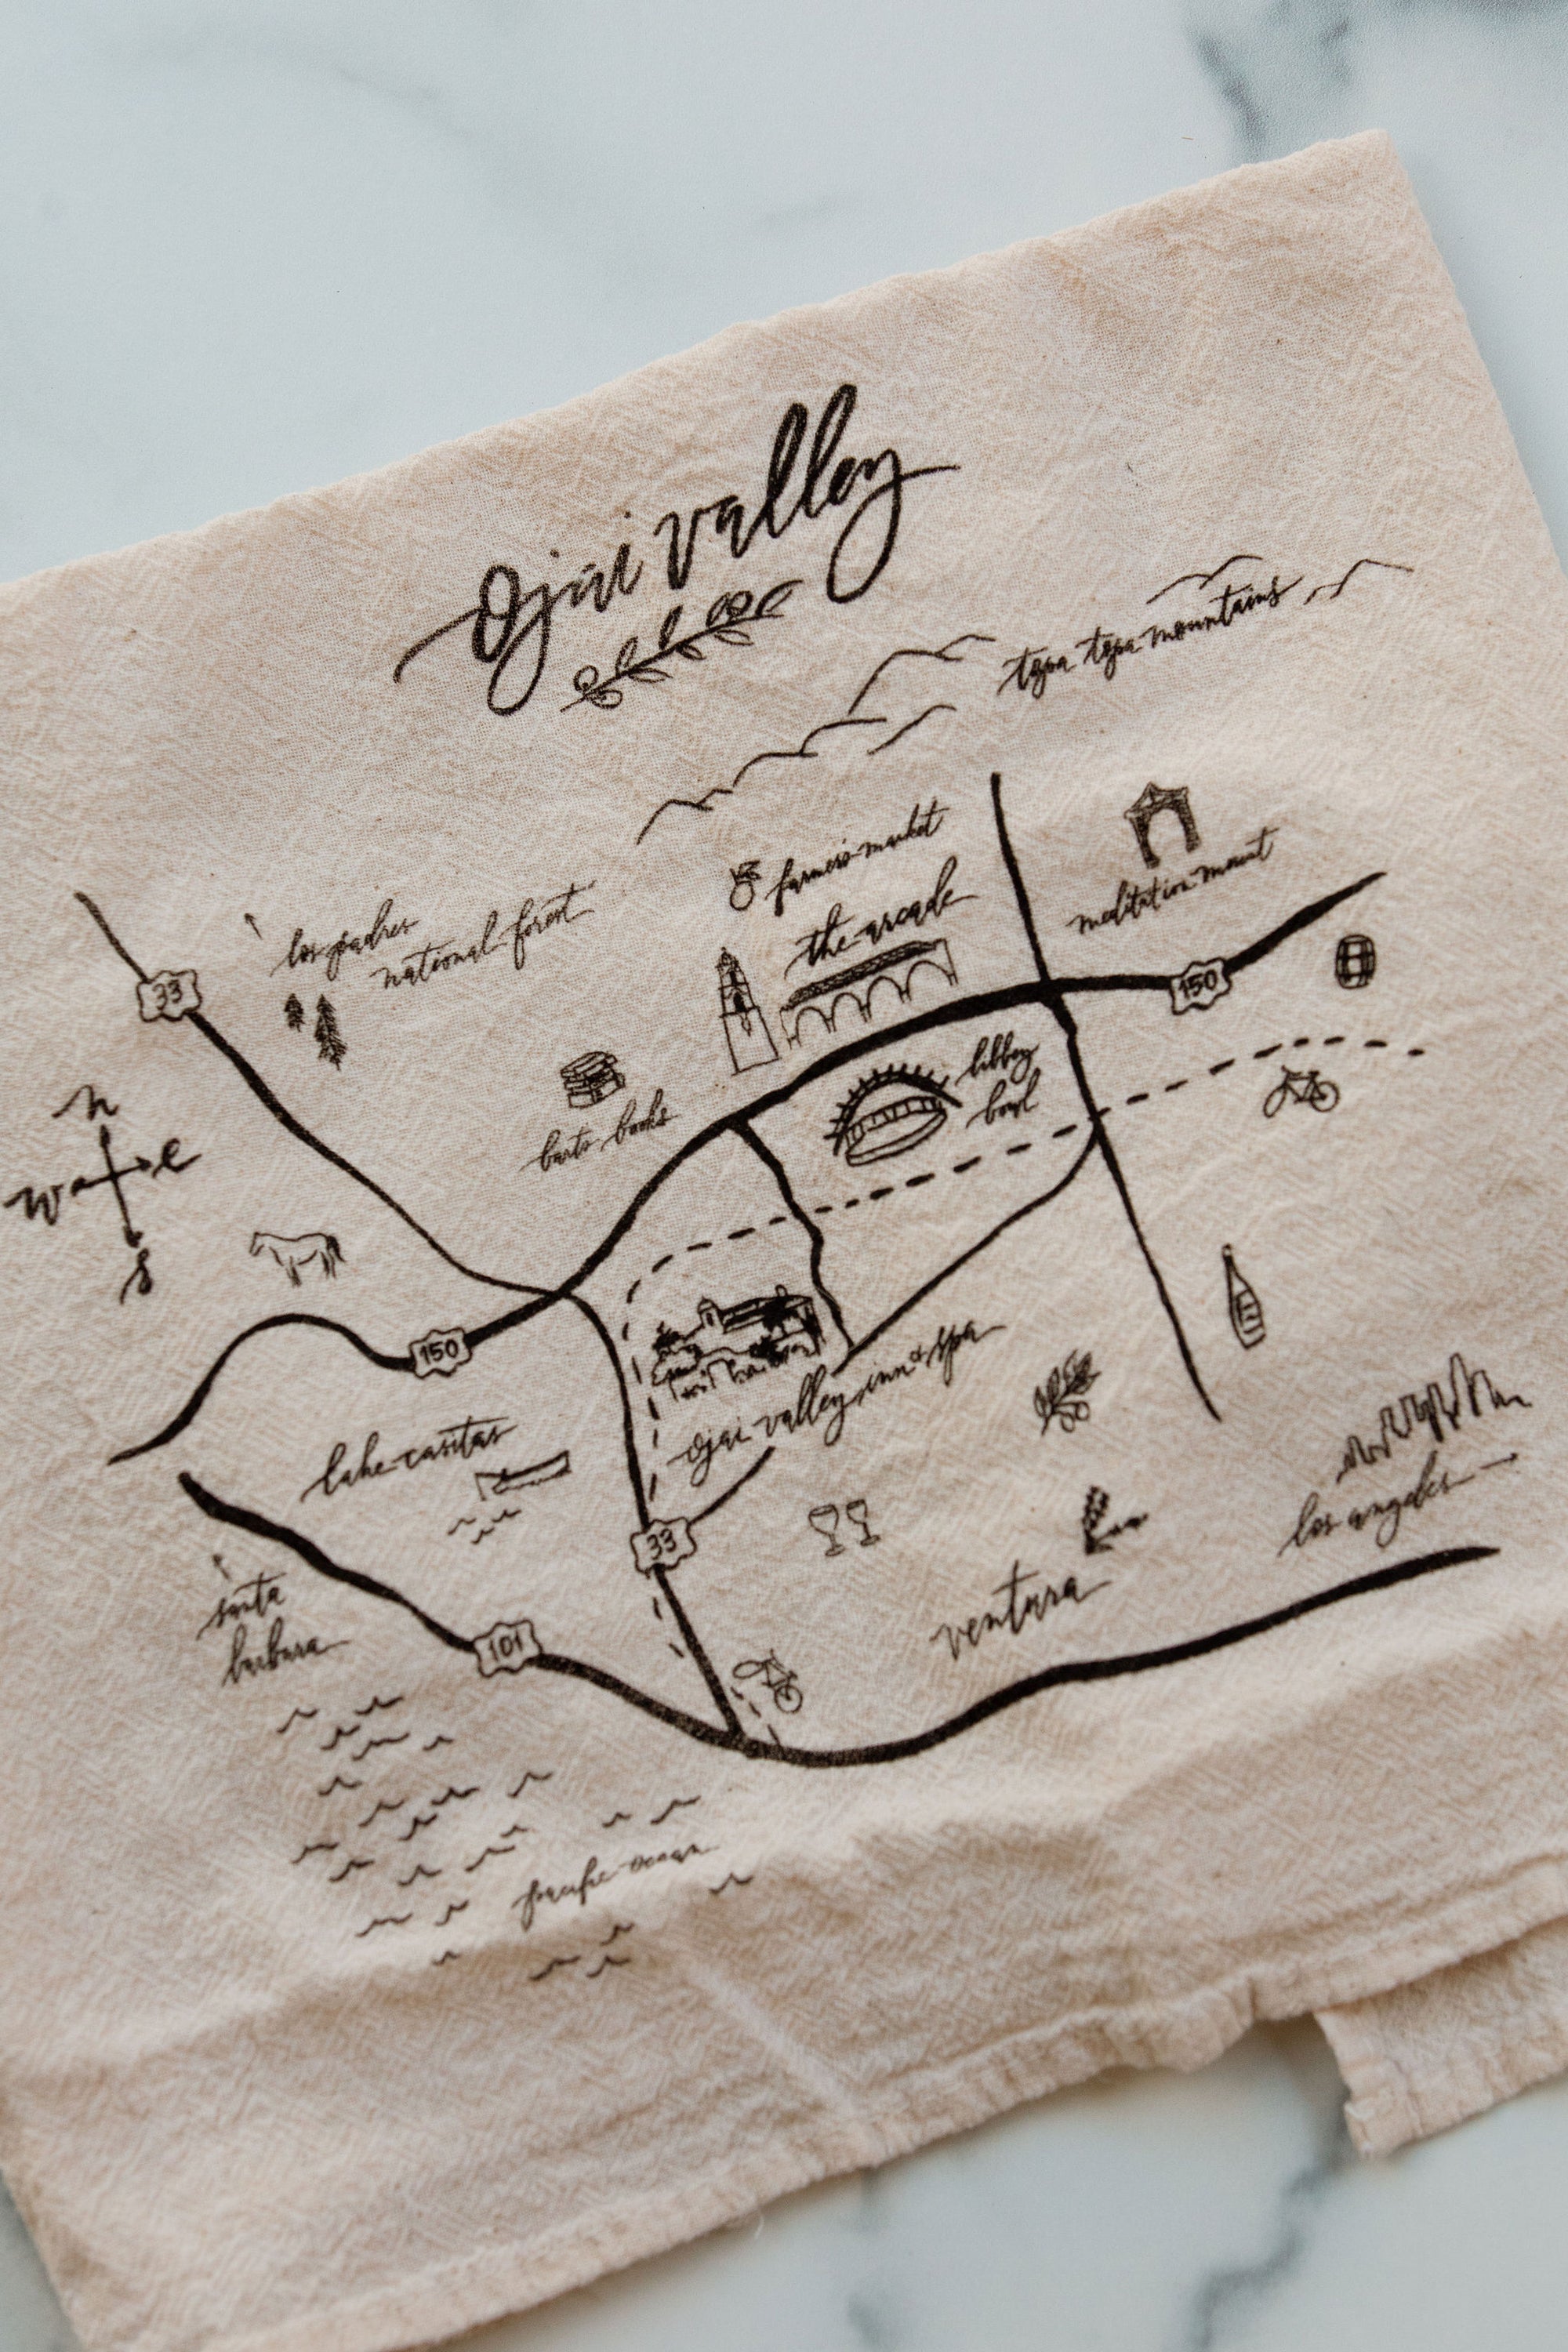 Ojai valley
topa topa mountains
farmers market
the arcade
meditation mount
los padres
national forest
33
150
libbey
bowl
barts books
n
w e
s
150
ojai valley inn & spa
lake casitas
33
los angeles
santa
barbara
ventura
101
pacific ocean